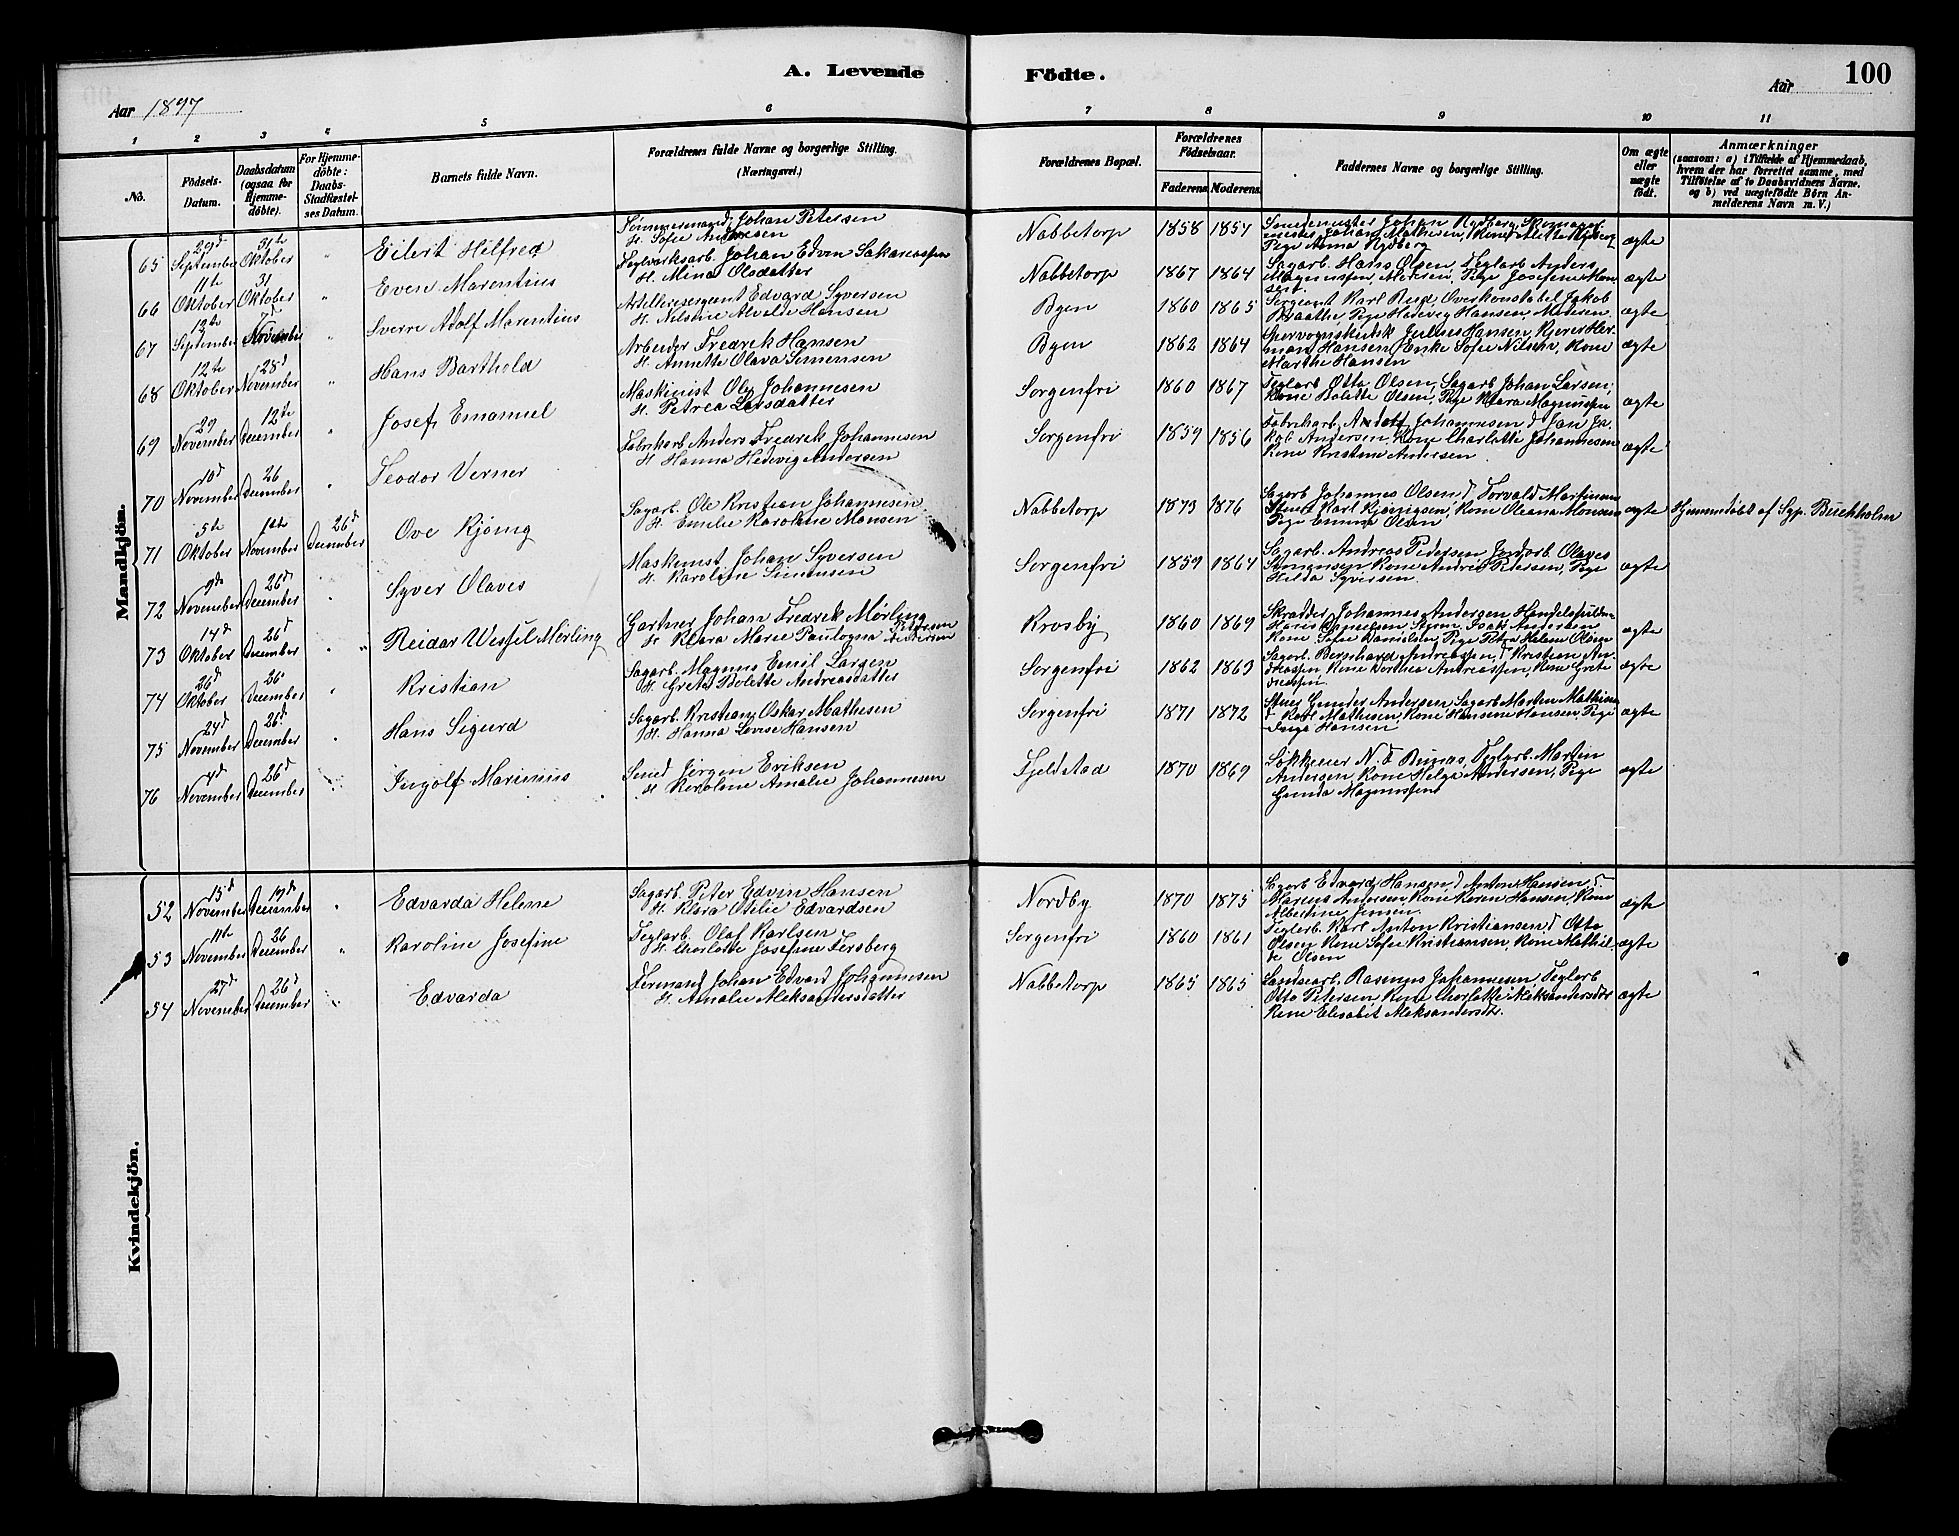 A. Levende Födte.
100
Aar 1897
Aar
1 2 3 4 5 6 7 8 9 10 11
No.
Födsels-Datum.
Daabsdatum (ogsaa for Hjemmedöbte).
For Hjemmedöbte: Daabs-Stadfæstelses Datum.
Barnets fulde Navn.
Forældrenes fulde Navne og borgerlige Stilling. (Næringsvei.)
Forældrenes Bopæl.
Forældrenes Födselsaar.
Faderens. Moderens.
Faddernes Navne og borgerlige Stilling.
Om ægte eller uægte födt.
Anmærkninger
(saasom: a) i Tilfælde af Hjemmedaab, hvem der har forrettet samme, med Tilföielse af to Daabsvidners Navne, og b) ved uægtefödte Börn Anmelderens Navn m. V.)
Mandkjön.
65 29d September 31te Oktober " Eilert Helfred
Tømmermand Johan Petersen
H. Sofie
Nabbetorp 1858 1857
Smedemester Johan Rydberg,
Johan Mathisen,
Pige Anna Rydberg
ægte
66 11te Oktober 31 Oktober " Even Marentius
Teglverksarb. Johan Edvin Sakariassen
H. Mina Olsdatter
Nabbetorp 1867 1864
Sagarb. Hans Olsen, Teglarb. Anders
Magnussen, Moderen, Pige Josefine Hansen
ægte
67 12te September 7d November " Sverre Adolf Marentius
Artillerisergeant Edvard Syversen
H. Nilsine Alvilde Hansen
Byen 1860 1865
Sergeant Karl Rud, Overkonstabel Jakob
Braathe, Pige Hedevig Hansen, Moderen.
ægte
68 12te Oktober 28d November " Hans Barthold
Arbeider Fredrik Hansen
H. Annette Olava Simensen
Byen 1862 1864
Sporvognskudsk Julius Hansen,
Hansen, Enke Sofie Nilsen, Kone
Marthe Hansen
ægte
69 29 November 12te December " Josef Emanuel
Maskinist Ole Johannesen
H. Petrea Larsdatter
Sorgenfri 1860 1867
Teglarb. Otto Olsen, Sagarb. Johan Larsen,
Kone Bolette Olsen, Pige Klara Magnussen
ægte
70 10d November 26 December " Teodor Verner
Fabrikarb. Anders Fredrik Johannesen
H. Hanna Hedevig Andersen
Sorgenfri 1859 1856
Fabrikarb. Johannesen, Jan Jakob
Andersen, Kone Charlotte Johannesen
Kone Kristine Andersen
ægte
71 5te Oktober 1ste November 26d December Ove Kjønig
Sagarb. Ole Kristian Johannesen
H. Emilie Karoline Monsen
Nabbetorp 1873 1876
Sagarb. Johannes Olsen, d Torvald Martinsen
Karl Kjønigsen, Kone Oleana Monsen
Pige Emma Olsen
ægte
Hjemmedöbt af Buckholm
72 9de November 26d December " Syver Olaves
Maskinist Johan Syversen
H. Karoline Simensen
Sorgenfri 1859 1864
Sagarb. Andreas Pedersen, Jordarb. Olaves
Simensen, Kone Petersen, Pige
Hilda Syversen.
ægte
73 14d Oktober 26d December " Reidar Wessel Mørling
Gartner Johan Fredrik Mørling
H. Klara Marie Paulogna Pedersen
Krosby 1860 1869
Skrædder Johannes Andersen,
Hans Isak Andersen
Kone Sofie Danielsen, Pige Petra Helene Olsen
ægte
74 26d Oktober 26 December " Kristian
Sagarb. Magnus Emil Larsen
H. Grete Bolette Andreasdatter
Sorgenfri 1862 1863
Sagarb. Bernhard Andreassen, d Kristian Andreassen,
Kone Dorthea Andreassen, Kone Grete
ægte
75 24d November 26d December " Hans Sigurd
Sagarb. Kristian Oskar Mathisen
H. Hanna Lovise Hansen
Sorgenfri 1871 1872
Gunder Andersen, Sagarb. Morten Mathisen
Karl Mathisen, Kone Hansine Hansen, Pige
Inga Hansen
ægte
76 4d November 26d December " Ingolf Marinius
Smed Jørgen Eriksen
H. Karoline Amalie Johannesen
Fjeldstad 1870 1869
N. F. Teglarb. Martin
Andersen, Kone Helga Andersen, Pige
Gunda Magnussen
ægte
Kvindekjön.
52 15d November 19d December " Edvarda Helene
Sagarb. Peter Edvin Hansen
H. Klara Otilie Edvardsen
Nordby 1870 1875
Sagarb. Edvard Hansen, d Anton Hansen
Marius Andersen, Kone Karen Hansen, Kone
Albertine Jensen
ægte
53 11te November 26 December " Karoline Josefine
Teglarb. Olaf Karlsen
H. Charlotte Josefine Fersberg
Sorgenfri 1860 1861
Teglarb. Karl Anton Kristiansen, d Otto
Olsen, Kone Sofie Kristiansen, Kone Mathilde
Olsen
ægte
54 27d November 26d December " Edvarda
Formand Johan Edvard Johannesen
H. Amalie Aleksandersdatter
Nabbetorp 1865 1865
Landsarb. Rasmus Johannesen, Teglarb.
Otto Petersen, Kone Charlotte Aleksandersdtr
Kone Elisabet Aleksandersdtr.
ægte